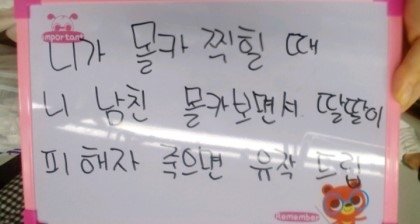 mportan
니가 몰카 찍힐 때
니 남친 몰카보면서 딸딸이
피해자 죽으면 유작 드립
Remember